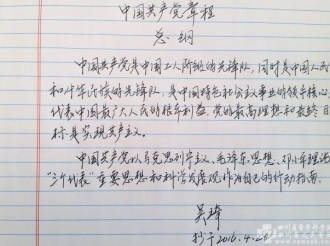 中国共产党章程
总纲
中国共产党是中国工人阶级的先锋队，同时是中国人民
和中华民族的先锋队，是中国特色社会主义事业的领导核心，
代表中国最广大人民的根本利益。党的最高理想和最终目
标是实现共产主义。
中国共产党以马克思列宁主义、毛泽东思想、邓小平理论
"三个代表"重要思想和科学发展观作为自己的行动指南。
吴琦
抄于2016.4.2